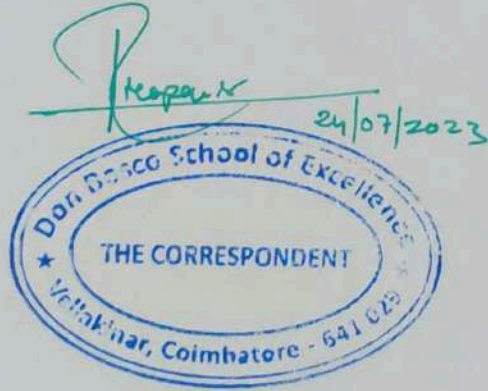 24/07/2023
Don Bosco School of Excellence
THE CORRESPONDENT
★ Vellakinar, Coimbatore - 641 029 ★